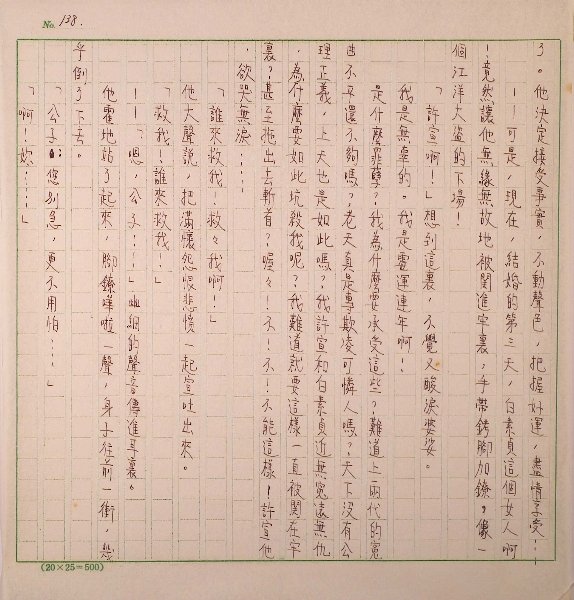 No. 138.
了。他決定接受事實，不動聲色，把握好運，盡情享受…
——可是，現在，結婚的第三天，白素貞這個女人啊
！竟然讓他無緣無故地被關進牢裏，手帶銬腳加鐐，像一
個江洋大盜的下場！
「許宣啊！」想到這裏，不覺又酸淚婆娑。
我是無辜的。我是霉運連年啊！
是什麼罪孽？我為什麼要承受這些？難道上兩代的冤
曲不平還不夠嗎？老天真是專欺凌可憐人嗎？天下沒有公
理正義，上天也是如此嗎？我許宣和白素貞近無冤遠無仇
，為什麼要如此坑殺我呢？我難道就要這樣一直被關在牢
裏？甚至拖出去斬首？喔々！不！不！不能這樣！許宣他
，欲哭無淚……
「誰來救我！救々我啊！」
他大聲說，把滿懷怨恨悲憤一起宣吐出來。
「救我！誰來救我！」
——「嗯，公子……」幽細的聲音傳進耳裏。
他霍地站了起來，腳鐐嘩啦一聲，身子往前一衝，幾
乎倒了下去。
「公子：您別急，更不用怕……」
「啊！妳……」
(20×25=500)